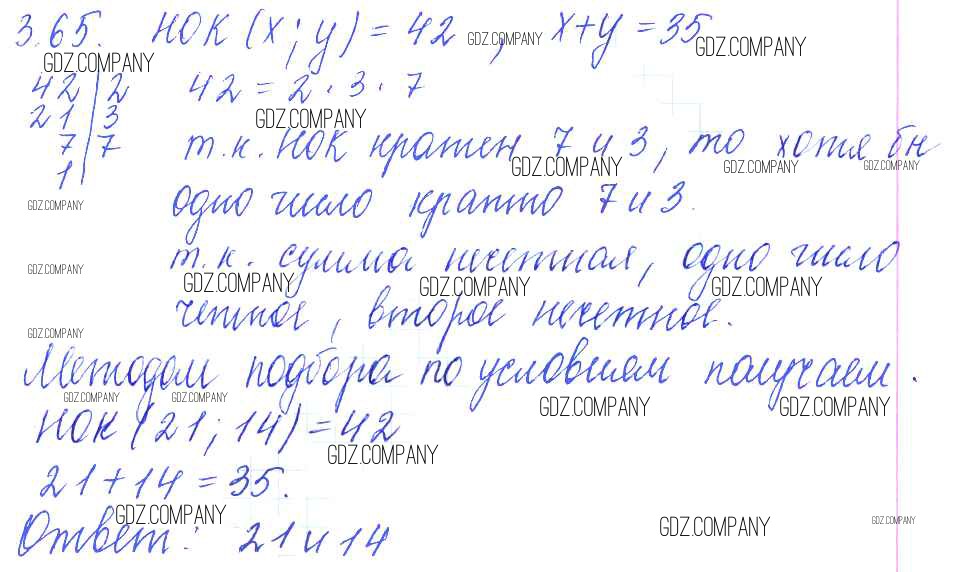 3.65. НОК (x; y) = 42 GDZ.COMPANY , x+y = 35 GDZ.COMPANY
GDZ.COMPANY
42 | 2 42 = 2 · 3 · 7
21 | 3 GDZ.COMPANY
7 | 7 т.к. НОК кратен 7 и 3, то хотя бы
1 | GDZ.COMPANY GDZ.COMPANY GDZ.COMPANY
GDZ.COMPANY одно число кратно 7 и 3.
GDZ.COMPANY т.к. сумма нечетная, одно число
GDZ.COMPANY GDZ.COMPANY GDZ.COMPANY
GDZ.COMPANY четное, второе нечетное.
Методом подбора по условиям получаем.
GDZ.COMPANY GDZ.COMPANY GDZ.COMPANY GDZ.COMPANY
НОК (21; 14) = 42
GDZ.COMPANY
21+14 = 35.
GDZ.COMPANY GDZ.COMPANY GDZ.COMPANY
Ответ: 21 и 14